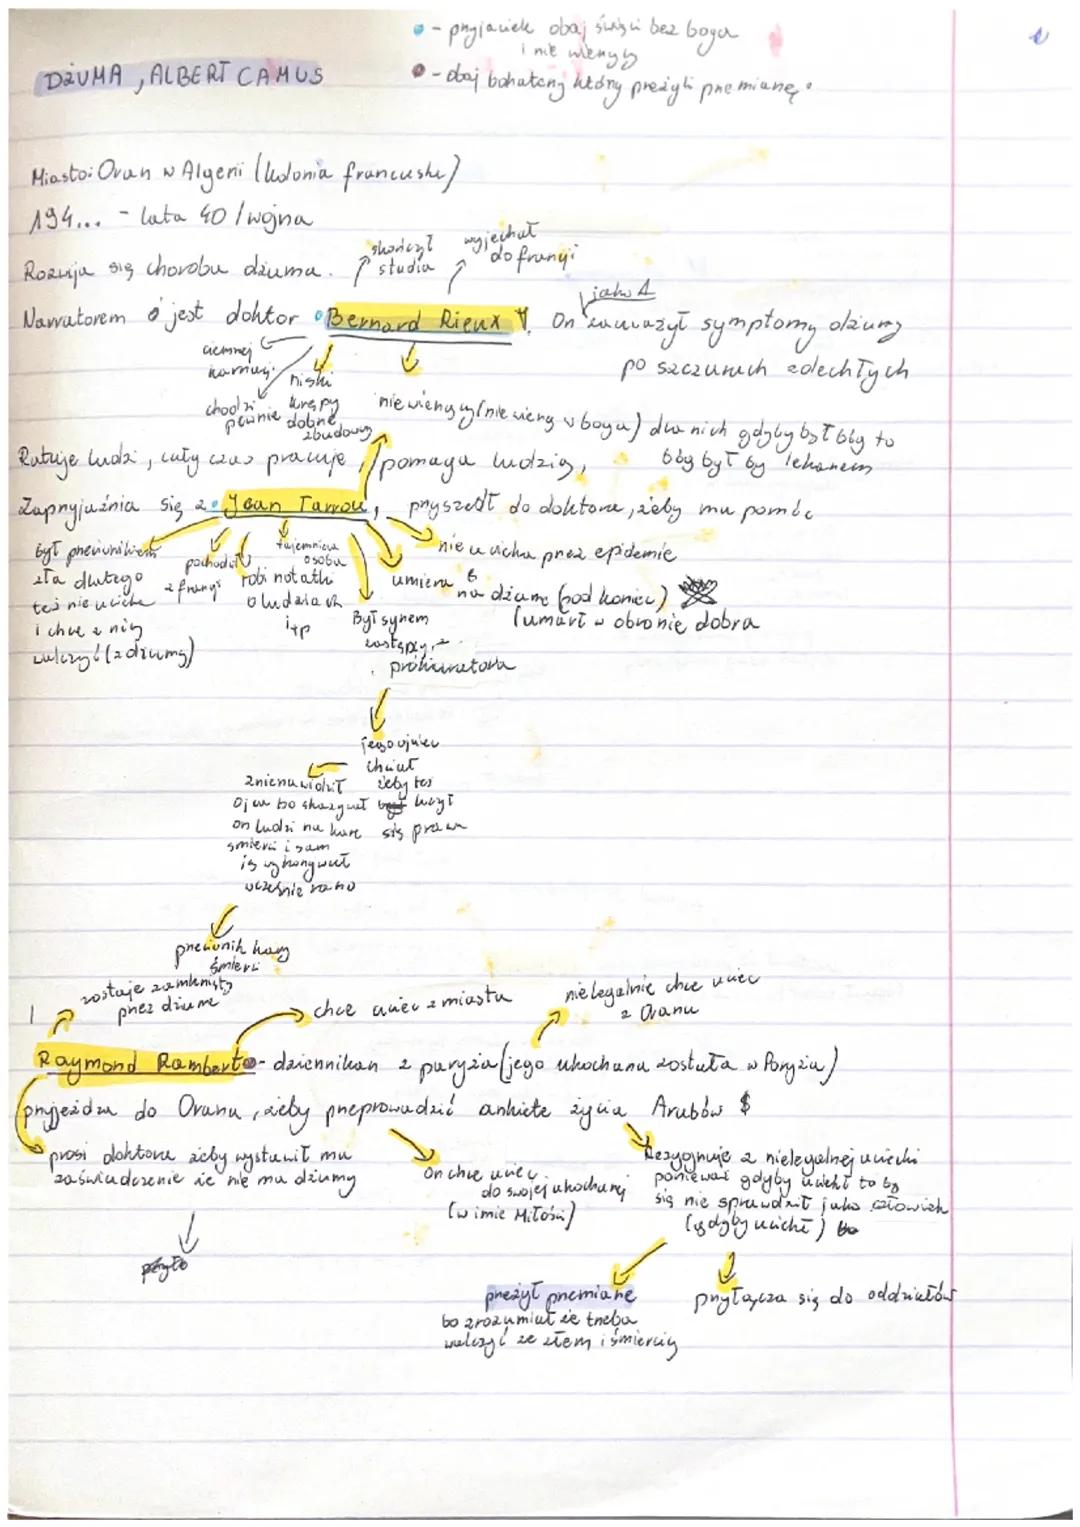 - przyjaciele obaj święci bez boga
i nie wierzyli
DŻUMA, ALBERT CAMUS
- obaj bohaterzy który przeżyli przemianę.
Miasto: Oran w Algerii (kolonia francuska)
194... - lata 40 / wojna
Rozwija się choroba dżuma.
skończył studia
wyjechał do francji
jako 1
Narratorem jest doktor Bernard Rieux. On zauważył symptomy dżumy
po szczurach zdechłych
ciemnej karnacji
chodzi pewnie
niski krępy dobrze zbudowany
nie wierzący (nie wierzą w boga) dla nich gdyby był bóg to
bóg byłby lekarzem
Ratuje ludzi, cały czas pracuje, pomaga ludzią,
Zaprzyjaźnia się z Jean Tarrou, przyszedł do doktora, żeby mu pomóc
był przeciwnikiem
zła dlatego
też nie ucieka
i chce z nią
walczyć (z dżumą)
pochodził
z francji
robi notatki
o ludziach
itp
tajemnicza
osoba
Był synem
zastępcy
prokuratora
umiera na dżumę (pod koniec)
(umarł w obronie dobra
nie ucieka przez epidemie
jego ojciec
chciał
żeby też
uczył
się prawa
znienawidził
Ojca bo skazywał
on ludzi na karę
śmierci i sam
ją wykonywał
wcześnie rano
przeciwnik kary
śmierci
zostaje zamknięty
przez dżume
chce uciec z miasta
nielegalnie chce uciec
z Oranu
Raymond Rambert - dziennikarz z paryża (jego ukochana została w Paryżu)
przyjeżdża do Oranu, żeby przeprowadzić ankiete życia Arabów $
prosi doktora żeby wystawił mu
zaświadczenie że nie ma dżumy
On chce uciec
do swojej ukochanej
(w imie Miłości)
Rezygnuje z nielegalnej ucieczki
ponieważ gdyby uciekł to by
się nie sprawdził jako człowiek
(gdyby uciekł)
przeżył przemiane
bo zrozumiał że trzeba
walczyć ze złem i śmiercią
przyłącza się do oddziałów